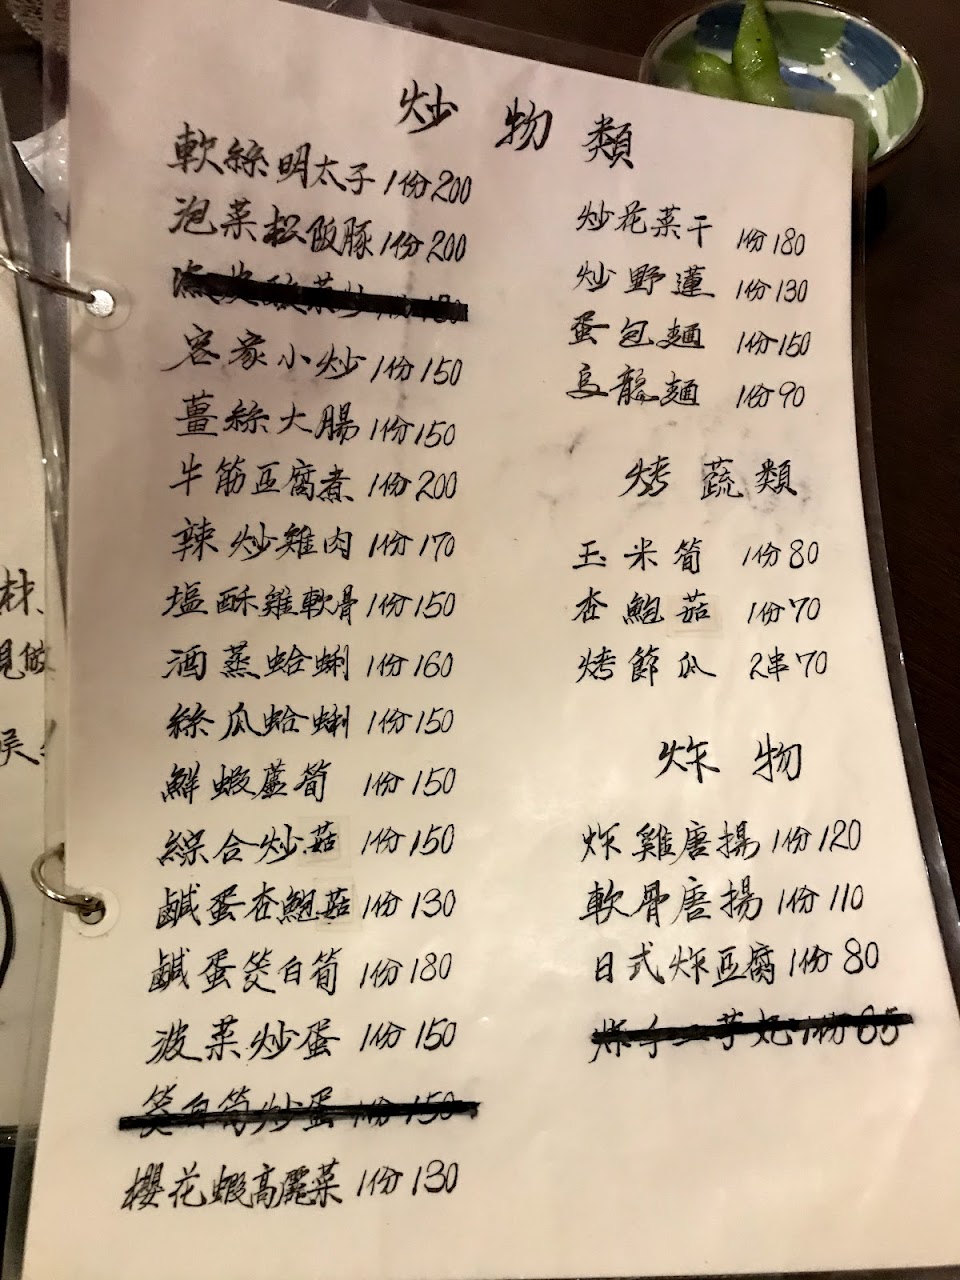 炒物類
軟絲明太子 1份200
泡菜松阪豚 1份200
客家小炒 1份150
薑絲大腸 1份150
牛筋豆腐煮 1份200
辣炒雞肉 1份170
塩酥雞軟骨 1份150
酒蒸蛤蜊 1份160
絲瓜蛤蜊 1份150
鮮蝦蘆筍 1份150
綜合炒菇 1份150
鹹蛋杏鮑菇 1份130
鹹蛋筊白筍 1份180
波菜炒蛋 1份150
筊白筍炒蛋 1份150
櫻花蝦高麗菜 1份130
炒花菜干 1份180
炒野蓮 1份130
蛋包麵 1份150
烏龍麵 1份90
烤蔬類
玉米筍 1份80
杏鮑菇 1份70
烤節瓜 2串70
炸物
炸雞唐揚 1份120
軟骨唐揚 1份110
日式炸豆腐 1份80